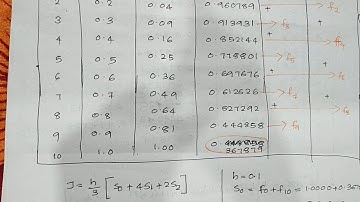 2 0.2 0.04 0.960789 + → f2
3 0.3 0.09 0.913931 → f3 +
4 0.4 0.16 0.852144 + → f4
5 0.5 0.25 0.778801 → f5 +
6 0.6 0.36 0.697676 + → f6
7 0.7 0.49 0.612626 → f7 +
8 0.8 0.64 0.527292 + → f8
9 0.9 0.81 0.444858 → f9
10 1.0 1.00 0.367879
I = h/3 [S0 + 4S1 + 2S2]
h = 0.1
S0 = f0 + f10 = 1.0000 + 0.367